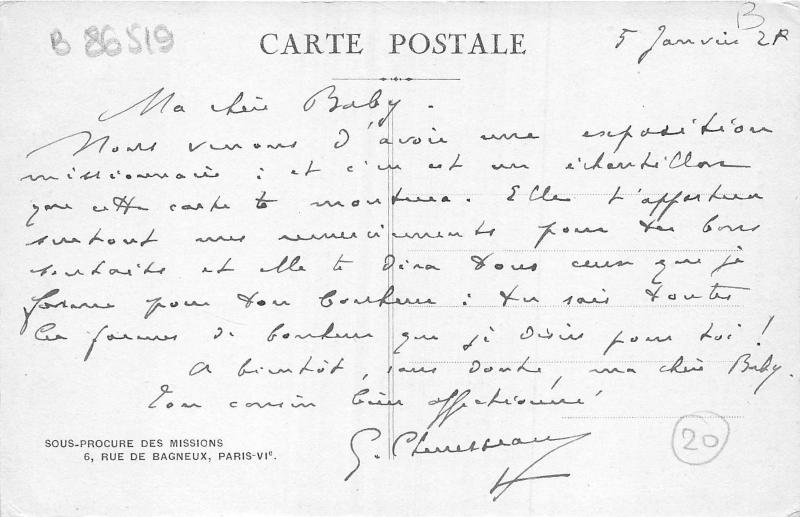 B
B 86519
CARTE POSTALE
5 Janvier 28
Ma chère Baby.
Nous venons d'avoir une exposition
missionnaire ; et c'en est un échantillon
que cette carte te montrera. Elle t'apportera
surtout mes remerciements pour tes bons
souhaits et elle te dira tous ceux que je
forme pour ton bonheur : tu sais toutes
les formes de bonheur que je désire pour toi !
A bientôt, sans doute, ma chère Baby.
Ton cousin bien affectionné
G.
SOUS-PROCURE DES MISSIONS
6, RUE DE BAGNEUX, PARIS-VIe.
20